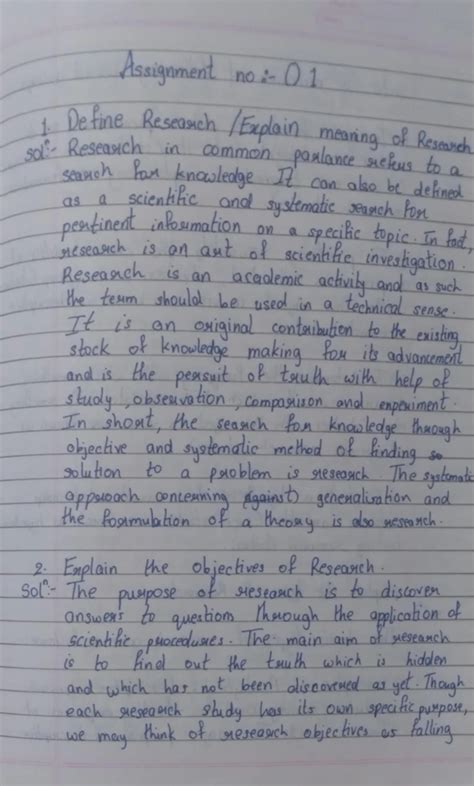 Assignment no :- 01
1. Define Research / Explain meaning of Research
Solⁿ:- Research in common parlance refers to a
search for knowledge. It can also be defined
as a scientific and systematic search for
pertinent information on a specific topic. In fact,
research is an art of scientific investigation.
Research is an academic activity and as such
the term should be used in a technical sense.
It is an original contribution to the existing
stock of knowledge making for its advancement
and is the persuit of truth with help of
study, observation, comparison and experiment.
In short, the search for knowledge through
objective and systematic method of finding so
solution to a problem is research. The systematic
approach concerning (against) generalisation and
the formulation of a theory is also research.
2. Explain the objectives of Research.
Solⁿ:- The purpose of research is to discover
answers to question through the application of
scientific procedures. The main aim of research
is to find out the truth which is hidden
and which has not been discovered as yet. Though
each research study has its own specific purpose,
we may think of research objectives as falling